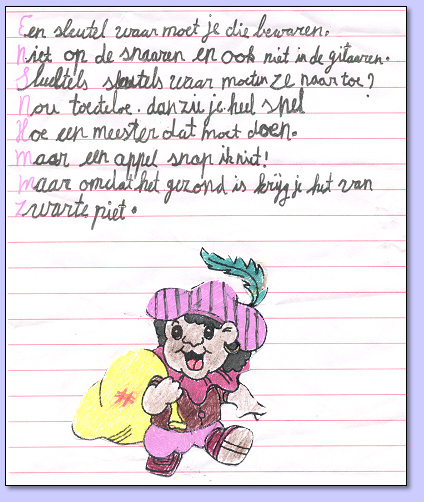 Een sleutel waar moet je die bewaren.
Niet op de snaaren en ook niet in de gitaaren.
Sluttels waar moeten ze naar toe?
Nou toedeloe. dan zij je heel snel
Hoe een meester dat moet doen.
maar een appel snap ik niet!
maar omdat het gezond is krijg je hit van
zwarte piet.